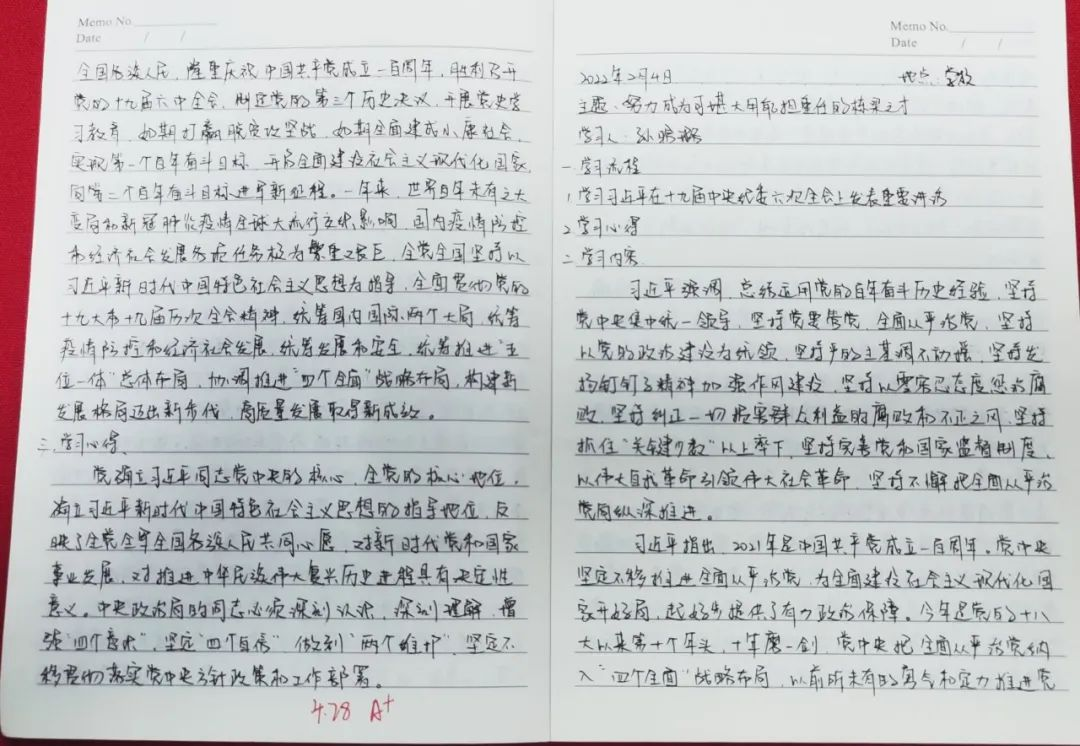 Memo No.
Date / /
全国各族人民，隆重庆祝中国共产党成立一百周年，胜利召开
党的十九届六中全会，制定党的第三个历史决议，开展党史学
习教育，如期打赢脱贫攻坚战，如期全面建成小康社会，
实现第一个百年奋斗目标，开启全面建设社会主义现代化国家，
向第二个百年奋斗目标进军新征程。一年来，世界百年未有之大
变局和新冠肺炎疫情全球大流行交织影响，国内疫情防控
和经济社会发展各项任务极为繁重艰巨，全党全国坚持以
习近平新时代中国特色社会主义思想为指导，全面贯彻党的
十九大和十九届历次全会精神，统筹国内国际两个大局，统筹
疫情防控和经济社会发展，统筹发展和安全，统筹推进"五
位一体"总体布局，协调推进"四个全面"战略布局，构建新
发展格局迈出新步伐，高质量发展取得新成效。
三、学习心得、
党确立习近平同志党中央的核心，全党的核心地位，
确立习近平新时代中国特色社会主义思想的指导地位，反
映了全党全军全国各族人民共同心愿，对新时代党和国家
事业发展，对推进中华民族伟大复兴历史进程具有决定性
意义。中央政治局的同志必须深刻认识，深刻理解，增
强"四个意识"，坚定"四个自信"，做到"两个维护"，坚定不
移贯彻落实党中央方针政策和工作部署。
4.28 A+
Memo No.
Date / /
2022年2月4日 地点：学校
主题：努力成为可堪大用能担重任的栋梁之才
学习人：孙
一学习流程
1.学习习近平在十九届中央纪委六次全会上发表重要讲话
2.学习心得
二学习内容
习近平强调，总结运用党的百年奋斗历史经验，坚持
党中央集中统一领导，坚持党要管党，全面从严治党，坚持
以党的政治建设为统领，坚持严的主基调不动摇，坚持发
扬钉钉子精神加强作风建设，坚持以零容忍态度惩治腐
败，坚持纠正一切损害群众利益的腐败和不正之风，坚持
抓住"关键少数"以上率下，坚持完善党和国家监督制度，
以伟大自我革命引领伟大社会革命，坚持不懈把全面从严治
党向纵深推进。
习近平指出，2021年是中国共产党成立一百周年。党中央
坚定不移推进全面从严治党，为全面建设社会主义现代化国
家开好局，起好步提供了有力政治保障。今年是党的十八
大以来第十个年头，十年磨一剑，党中央把全面从严治党纳
入"四个全面"战略布局，以前所未有的勇气和定力推进党